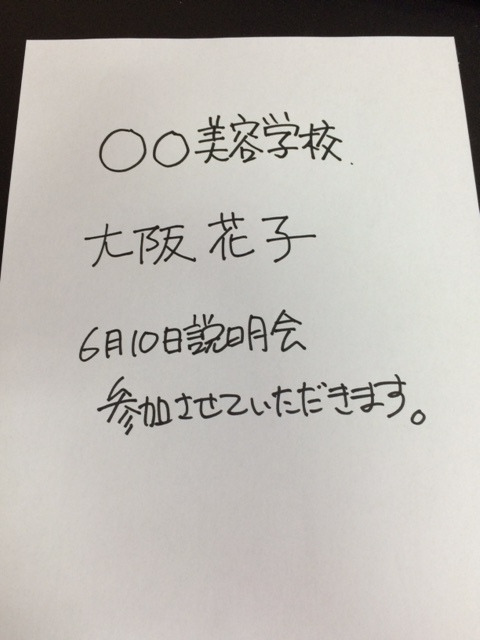 〇〇美容学校
大阪 花子
6月10日説明会
参加させていただきます。